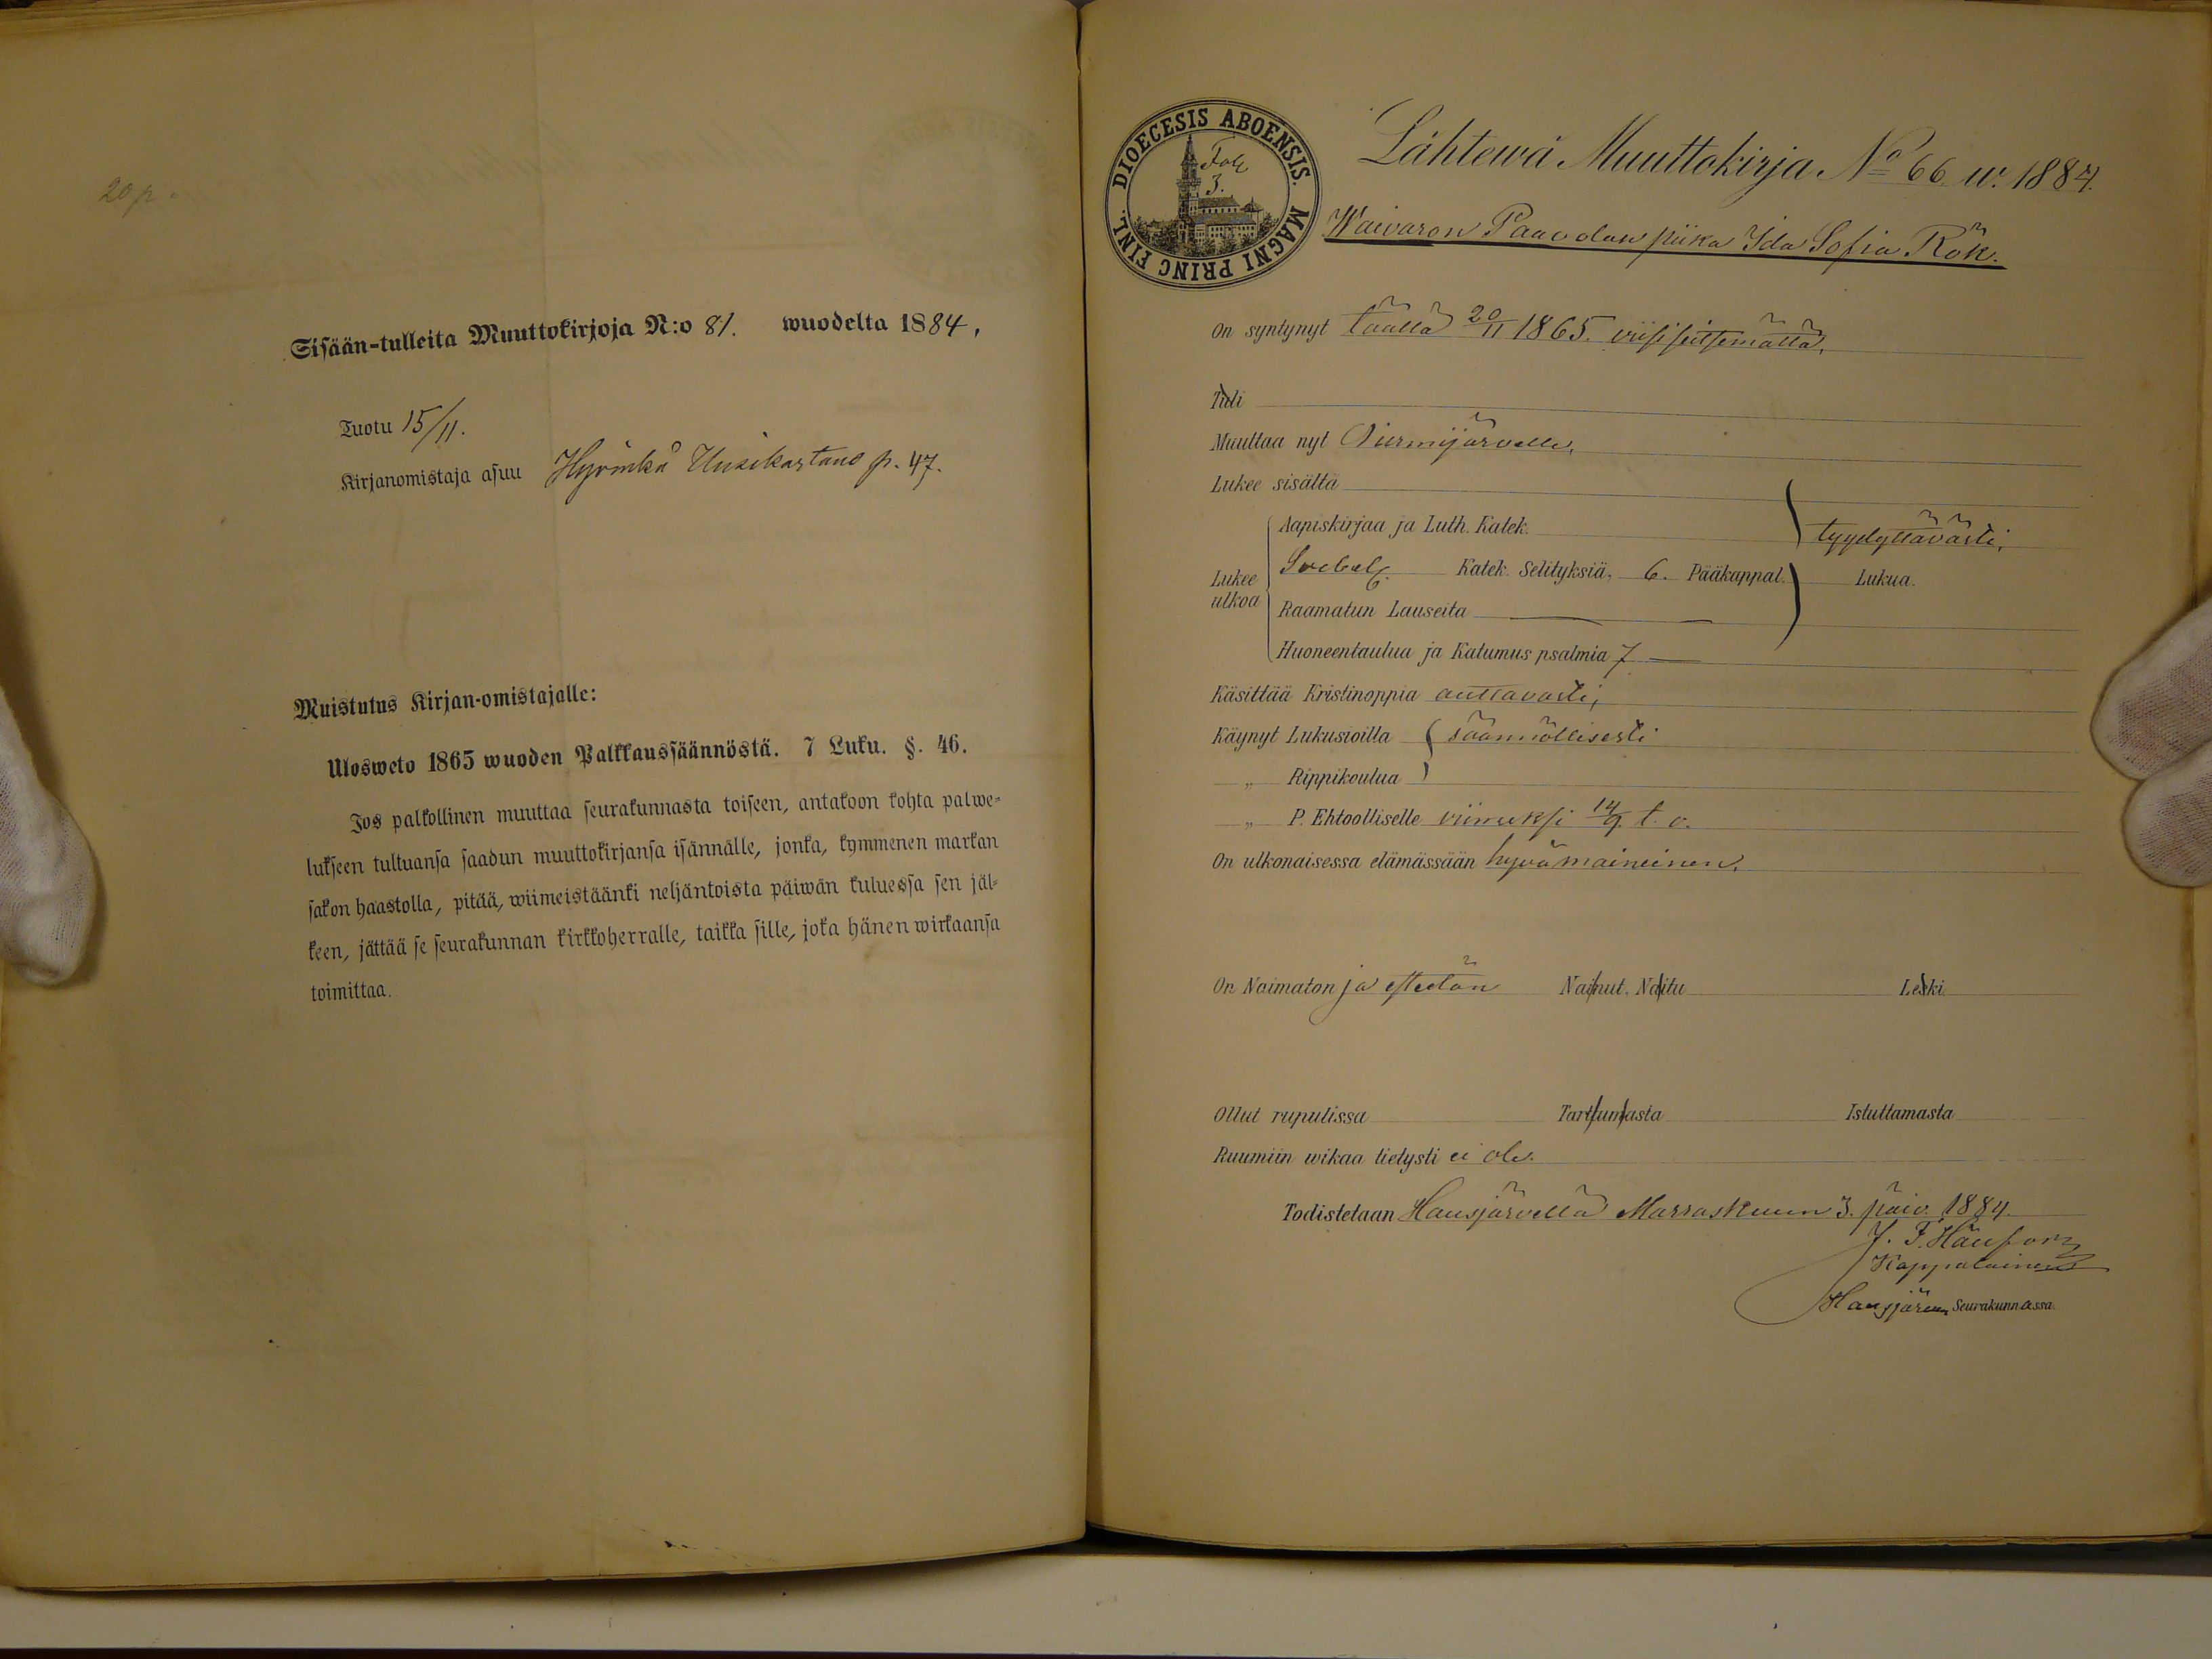 20 p.
Sisään-tulleita Muuttokirjoja N:o 81. wuodelta 1884,
Tuotu 15/11.
Kirjanomistaja asuu Hyvinkä Uusikartano p. 47.
Muistutus Kirjan-omistajalle:
Ulosweto 1865 wuoden Palkkaussäännöstä. 7 Luku. §. 46.
Jos palkollinen muuttaa seurakunnasta toiseen, antakoon kohta palwe-
lukseen tultuansa saadun muuttokirjansa isännälle, jonka, kymmenen markan
sakon haastolla, pitää, wiimeistäänki neljäntoista päiwän kuluessa sen jäl-
keen, jättää se seurakunnan kirkkoherralle, taikka sille, joka hänen wirkaansa
toimittaa.
DIOECESIS ABOENSIS. MAGNI PRINC FINL.
Fol.
3.
Lähtewä Muuttokirja No 66 w. 1884.
Waivaron Paavolan piika Ida Sofia Rök.
On syntynyt täällä 20/11 1865. viisiseitsemättä.
Tuli
Muuttaa nyt Nurmijärvelle,
Lukee sisältä
Aapiskirjaa ja Luth. Katek. tyydyttävästi,
Lukee ulkoa Svebel. Katek. Selityksiä, 6. Pääkappal. Lukua.
Raamatun Lauseita —
Huoneentaulua ja Katumus psalmia 7 —
Käsittää Kristinoppia auttavasti,
Käynyt Lukusioilla säännöllisesti
„ Rippikoulua
„ P. Ehtoolliselle viimeksi 14/9 t. v.
On ulkonaisessa elämässään hyvämaineinen.
On Naimaton ja esteetön Nainut, Naitu Leski
Ollut rupulissa Tarttumasta Istuttamasta
Ruumiin wikaa tietysti ei ole.
Todistetaan Hausjärvellä Marraskuun 3. päiv. 1884.
Kappalainen
Hausjärven Seurakunnassa.